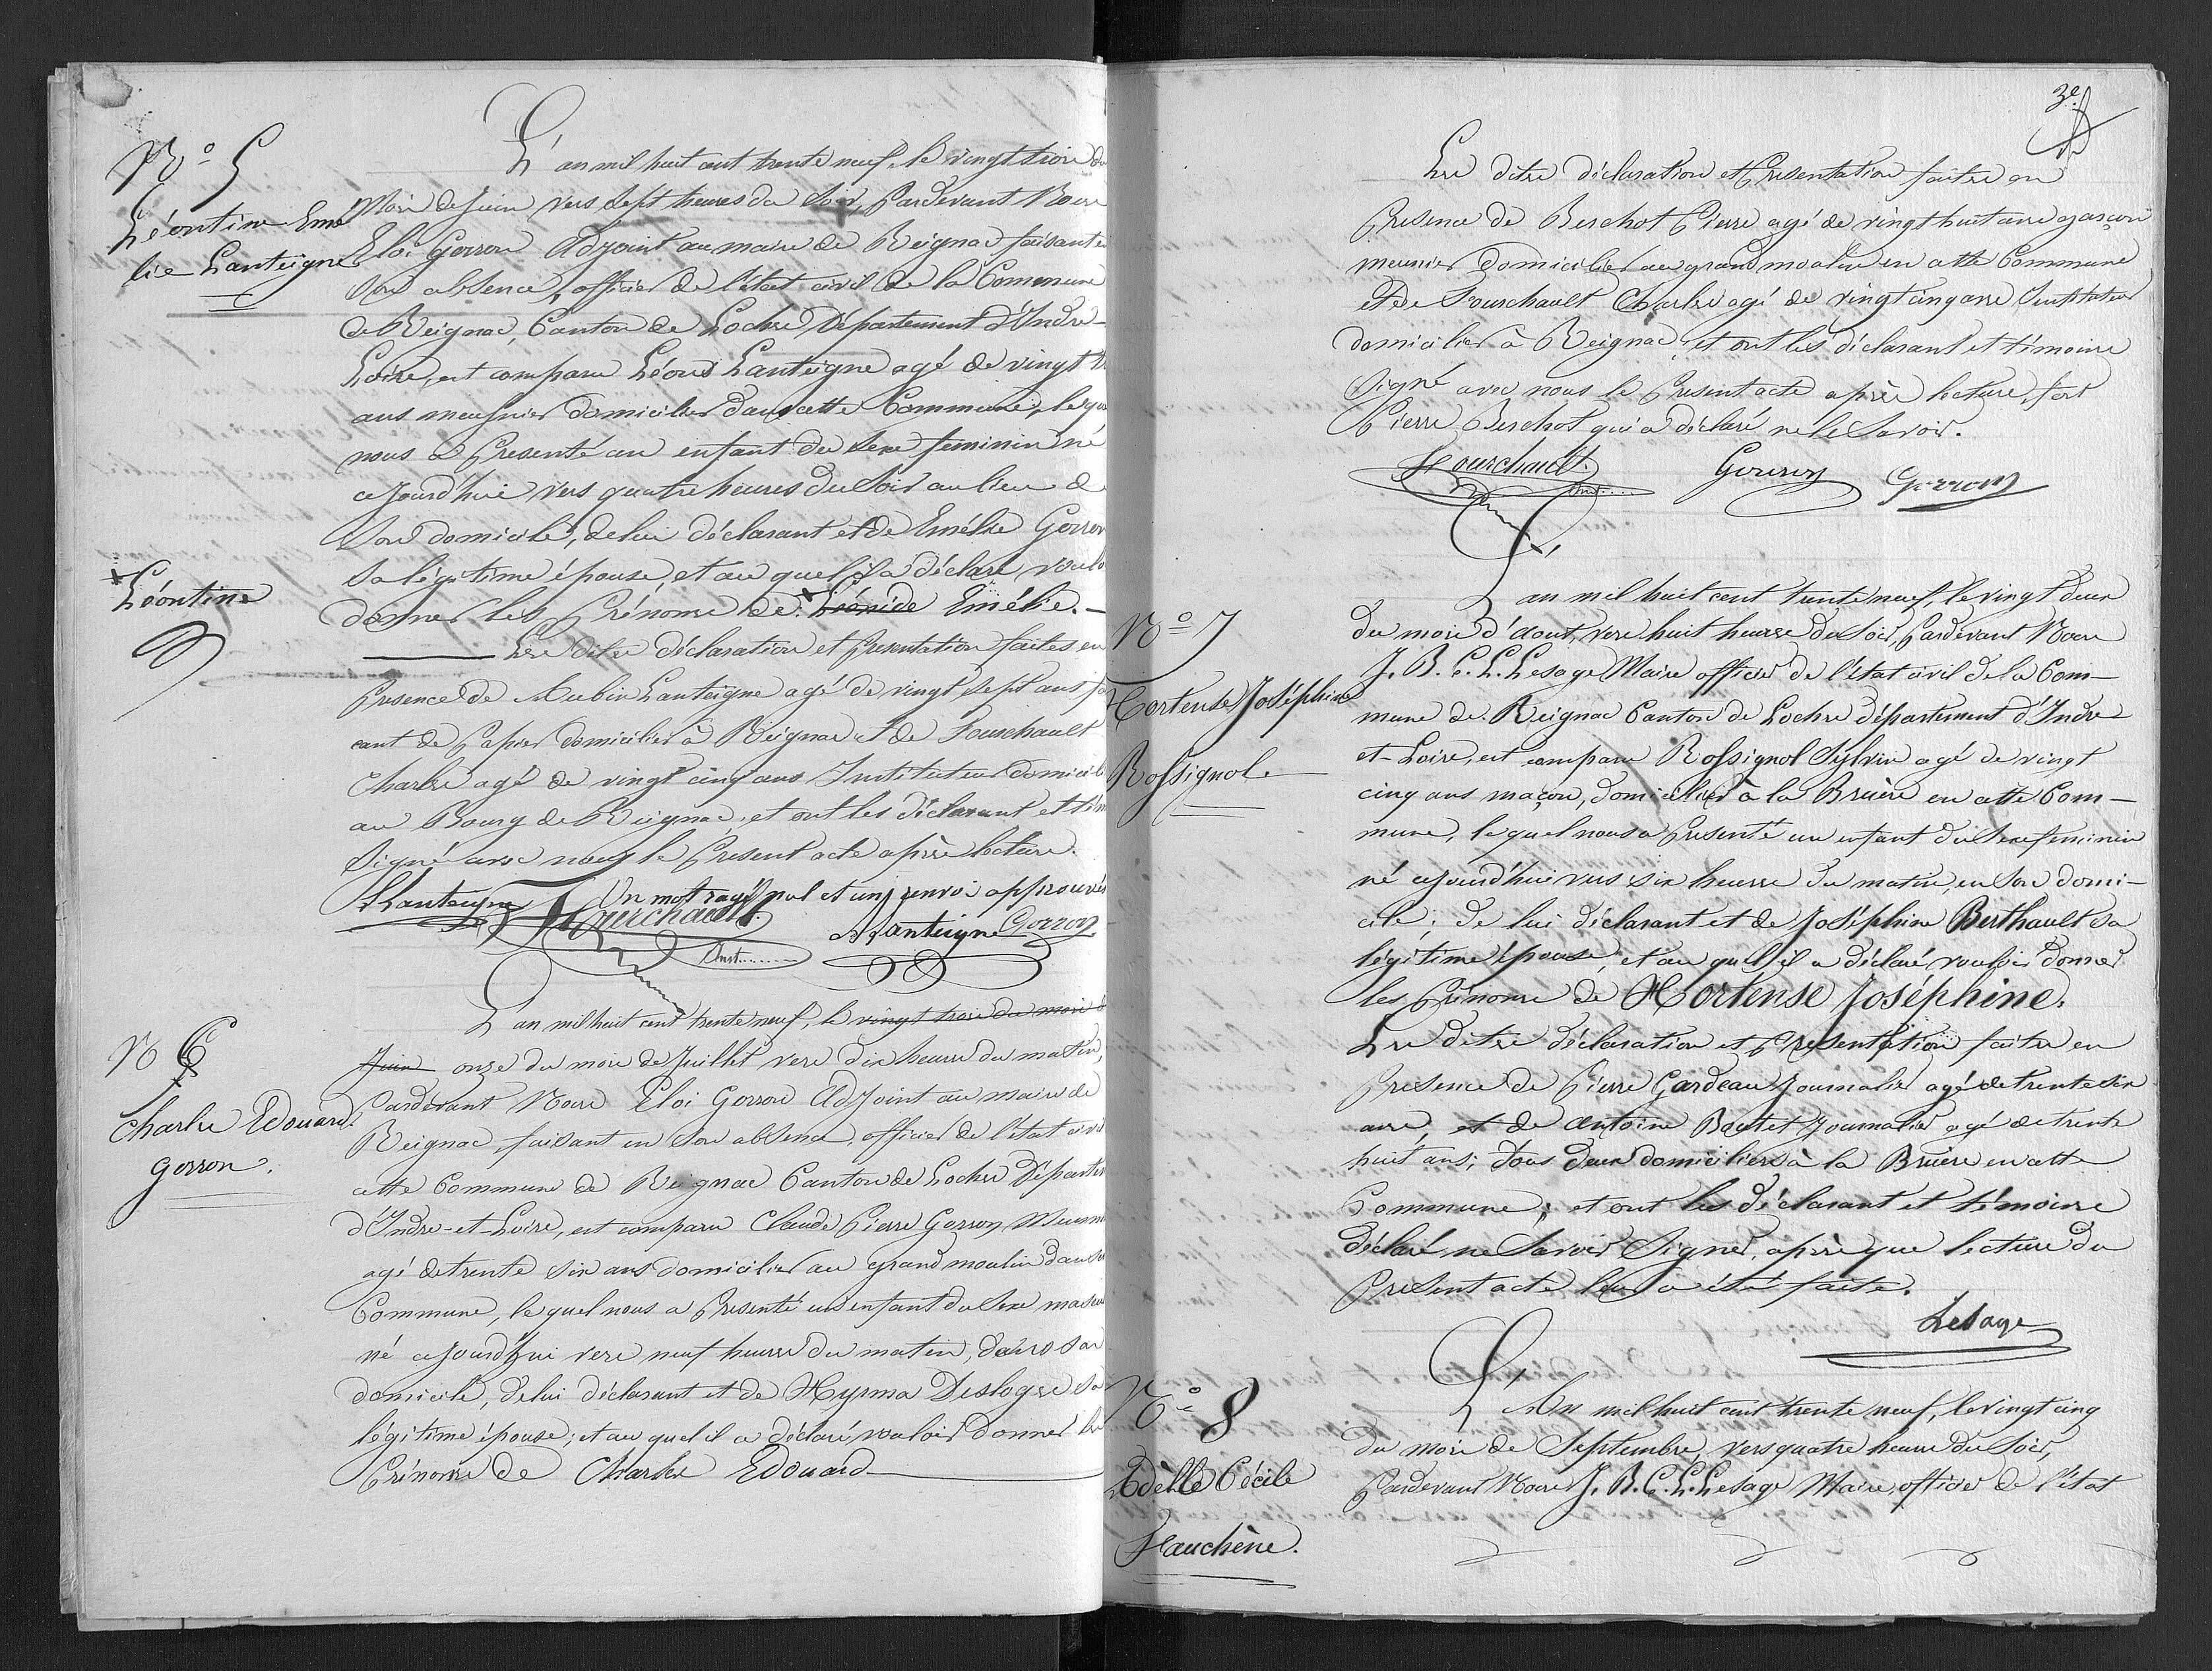 N.o 5
Léontine Emé
lie Lanteigne
L'an mil huit cent trente neuf, le vingt trois du
Mois de Juin vers sept heures du Soir, Pardevant Nous
Eloi Gorron Adjoint au maire de Reignac faisant en
Son absence, officier de l'état civil de la Commune
de Reignac, Canton de Loches Département d'Indre-
Loire, est comparu Léonid Lanteigne agé de vingt
ans meusnier domicilier dans cette Commune, lequ
nous a Presenté un enfant du Sexe feminin né
cejourd'hui vers quatre heures du Soir au lieu de
Son domicile, de lui déclarant et de Emélie Gorron
Sa légitime épouse, et au quel il a déclaré voulo
donner les Prénoms de Léonide Emélie.-
+ Léontine
Les dites déclaration et Presentation faites en
Presence de Aubin Lanteigne agé de vingt sept ans fa
cant de Papier domicilier à Reignac et de Fourchault
Charles agé de vingt cinq ans Instituteur domicil
au Bourg de Reignac, et ont les déclarant et tém
Signé avec nous le Present acte après lecture.
Un mot rayé nul et un renvoi approuvés
Lanteigne Fourchault. Lanteigne Gorron
Inst.......
N 6
Charles Edouard
Gorron.
L'an mil huit cent trente neuf, le vingt trois du mois d
Juin onze du mois de Juillet vers dix heures du matin,
Pardevant Nous Eloi Gorron Adjoint au maire de
Reignac, faisant en Son absence, officier de l'état civil
cette Commune de Reignac Canton de Loches Départem
d'Indre-et-Loire, est comparu Claude Pierre Gorron, Meusni
agé de trente six ans domicilier au grand moulin dans
Commune, lequel nous a Presenté un enfant du Sexe mascu
né cejourd'hui vers neuf heures du matin, dans son
domicile, de lui déclarant et de Hyrma Desloges sa
légitime épouse; et au quel il a déclaré, vouloir donner les
Prénoms de Charles Edouard
3e
Les dites déclaration et Presentation faites en
Presence de Berchot Pierre agé de vingt huit ans garçon
meunier domicilier au grand moulin en cette Commune
et de Fourchault Charles agé de vingt cinq ans Instituteur
domicilier à Reignac, et ont les déclarant et témoins
Signé avec nous le Present acte après lecture, fors
Pierre Berchot qui a déclaré ne le Savoir.
Fourchault. Gorron Gorron
Inst.....
N.o 7
Hortense Joséphine
Rossignol.
L'an mil huit cent trente neuf, le vingt deux
du mois d'Aout, vers huit heures du Soir, Pardevant Nous
J. B. C. L. Lesage Maire officier de l'état civil de la Com-
mune de Reignac Canton de Loches département d'Indre
et-Loire, est comparu Rossignol Sylvin agé de vingt
cinq ans maçon, domicilier à la Bruère en cette Com-
mune, lequel nous a Presenté un enfant du Sexe feminin
né cejourd'hui vers six heures du matin, en Son domi-
cile; de lui déclarant et de Joséphine Berthault Sa
légitime épouse, et au quel il a déclaré vouloir donner
les Prénoms de Hortense Joséphine.
Les dites déclaration et Presentation faites en
Presence de Pierre Gardeau Journalier agé de trente six
ans, et de Antoine Boutet Journalier agé de trente
huit ans; tous deux domiciliers à la Bruère en cette
Commune; et ont les déclarant et témoins
déclaré ne Savoir Signer, après que lecture du
Present acte leur a été faite.
Lesage
N.o 8
Adèlle Cécile
Fauchène.
L'An mil huit cent trente neuf, le vingt cinq
du mois de Septembre, vers quatre heures du Soir,
Pardevant Nous J. B. C. L. Lesage Maire, officier de l'état